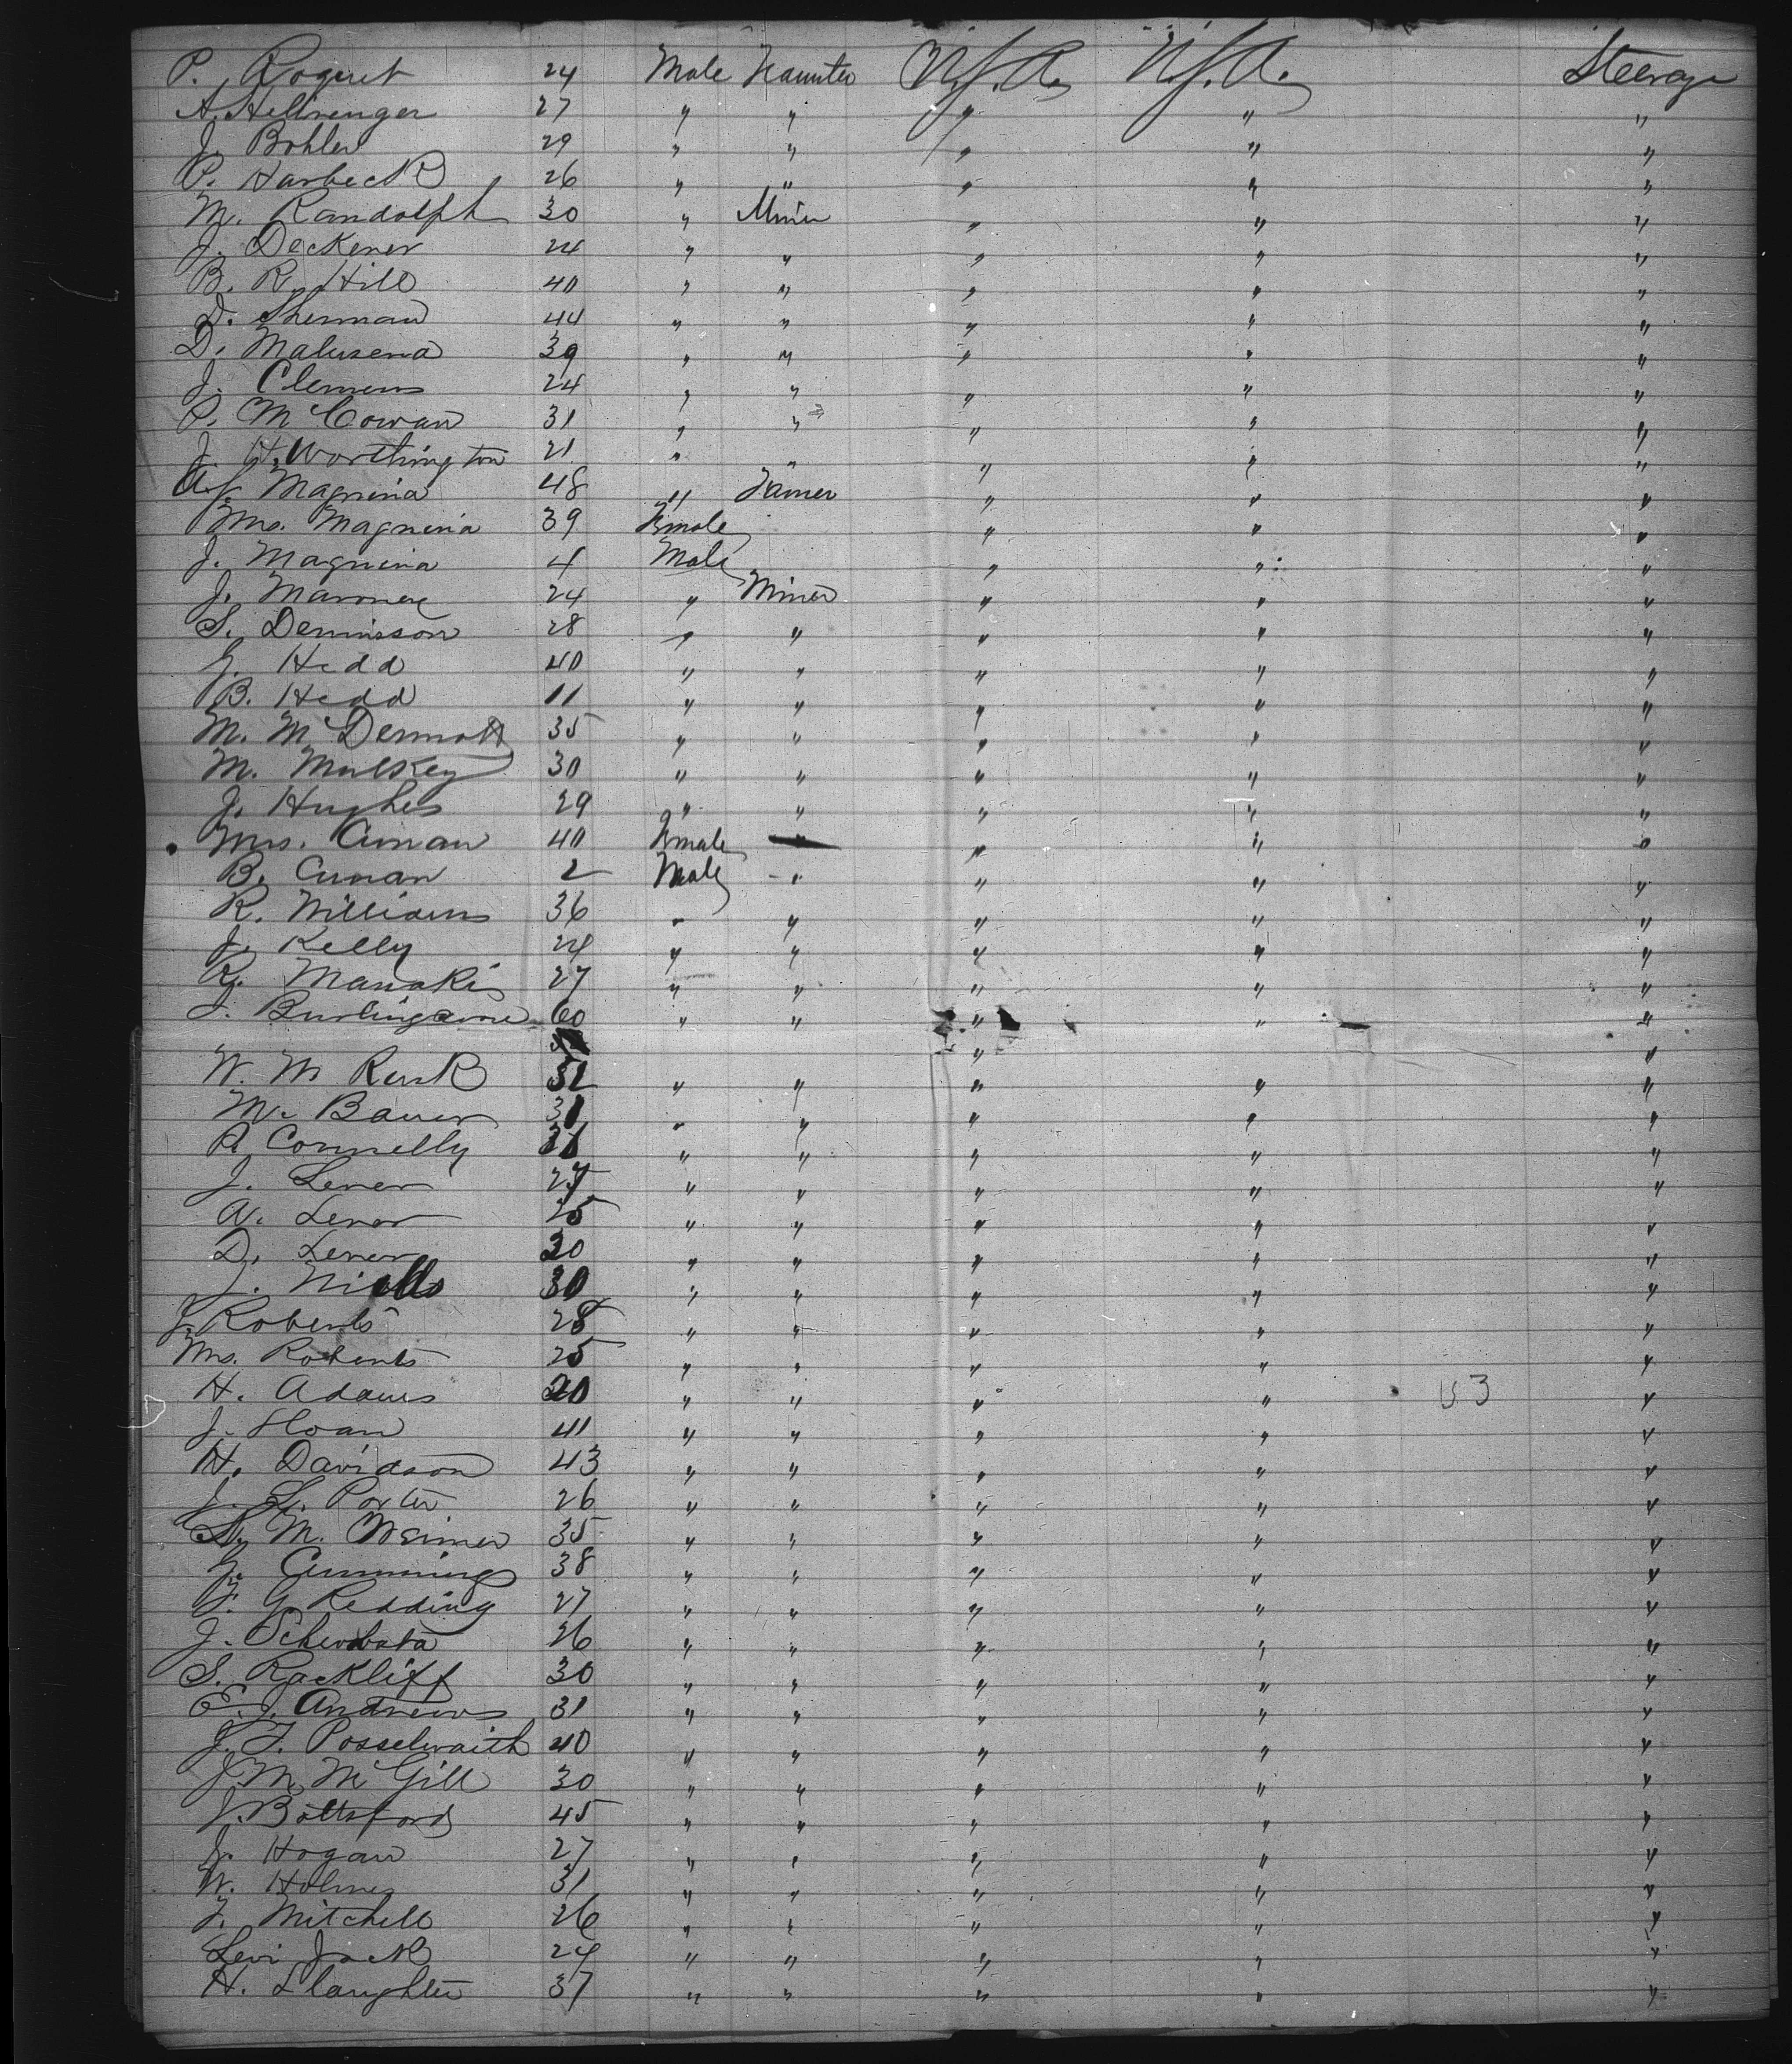 P. Rogeret 24 Male U.S.A. U.S.A. Steerage
A. Hellrenger 27 " " " " "
J. Bohler 29 " " " " "
P. Harbeck 26 " " " " "
M. Randolph 30 " Miner " " "
J. Deckener 24 " " " " "
B. R. Hill 40 " " " " "
D. Sherman 44 " " " " "
D. Malusena 39 " " " " "
J. Clemens 24 " " " " "
P. McCowan 31 " " " " "
J. H. Worthington 21 " " " " "
A. J. Magnina 48 " Farmer " " "
Mrs. Magnina 39 Female " " "
J. Magnina 4 Male " " "
J. 24 " Miner " " "
S. Dennisson 28 " " " " "
G. Hedd 40 " " " " "
B. Hedd 11 " " " " "
M. McDermott 35 " " " " "
M. Mulkey 30 " " " " "
J. Hughes 29 " " " " "
Mrs. Curran 40 Female " " "
B. Curran 2 Male " " " "
R. Williams 36 " " " " "
J. Kelly 24 " " " " "
R. Manakis 27 " " " " "
J. Burlingame 60 " " " " "
" "
W. M Rusk 32 " " " " "
M. Bauer 31 " " " " "
P. Connelly 31 " " " " "
J. Lener 27 " " " " "
A. Lener 25 " " " " "
D. Lener 30 " " " " "
J. Niells 30 " " " " "
J. Roberts 28 " " " " "
Mrs. Roberts 25 " " " " "
H. Adams 20 " " " " 53 "
J. Sloan 41 " " " " "
H. Davidson 43 " " " " "
J. L. Porter 26 " " " " "
S. M. Weimer 35 " " " " "
J. Cummings 38 " " " " "
F. G. Redding 27 " " " " "
J. 26 " " " " "
S. Rackliff 30 " " " " "
E. J. Andrews 31 " " " " "
J. F. Posselwaith 40 " " " " "
J. M. McGill 30 " " " " "
J. Bottsford 45 " " " " "
J. Hogan 27 " " " " "
W. Holmes 31 " " " " "
F. Mitchell 26 " " " " "
Levi Jack 24 " " " " "
H. Slaughter 37 " " " " "